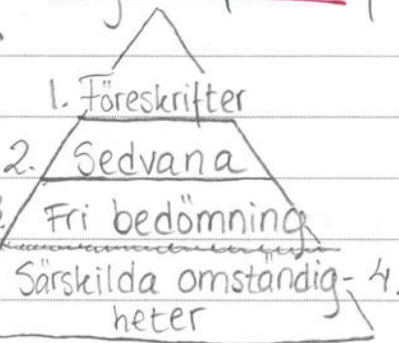 1. Föreskrifter
2. Sedvana
3. Fri bedömning
Särskilda omständig- 4.
heter